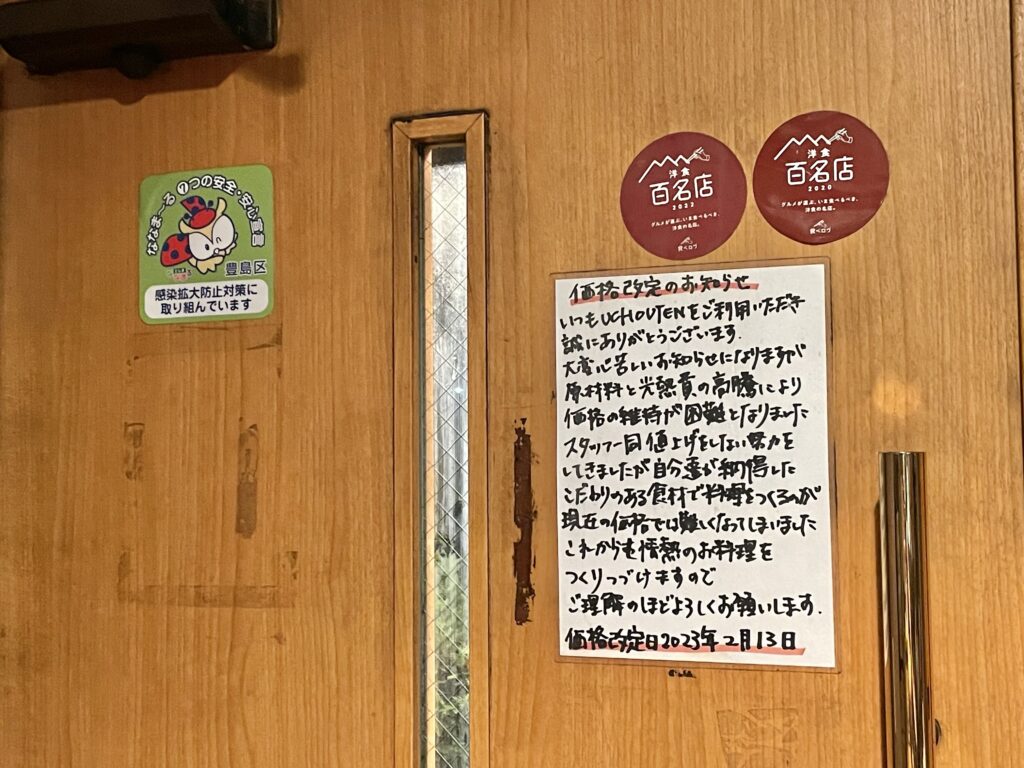 ななまーる7つの安全・安心宣言
豊島区
感染拡大防止対策に
取り組んでいます
洋食
百名店
2022
グルメが選ぶ、いま食べるべき、
洋食の名店。
食べログ
洋食
百名店
2020
グルメが選ぶ、いま食べるべき、
洋食の名店。
食べログ
価格改定のお知らせ
いつもUCHOUTENをご利用いただき
誠にありがとうございます.
大変心苦しいお知らせになりますが
原材料と光熱費の高騰により
価格の維持が困難となりました
スタッフ一同値上げをしない努力を
してきましたが自分達が納得した
こだわりのある食材で料理をつくるのが
現在の価格では難しくなってしまいました
これからも情熱のお料理を
つくりつづけますので
ご理解のほどよろしくお願いします.
価格改定日2023年2月13日